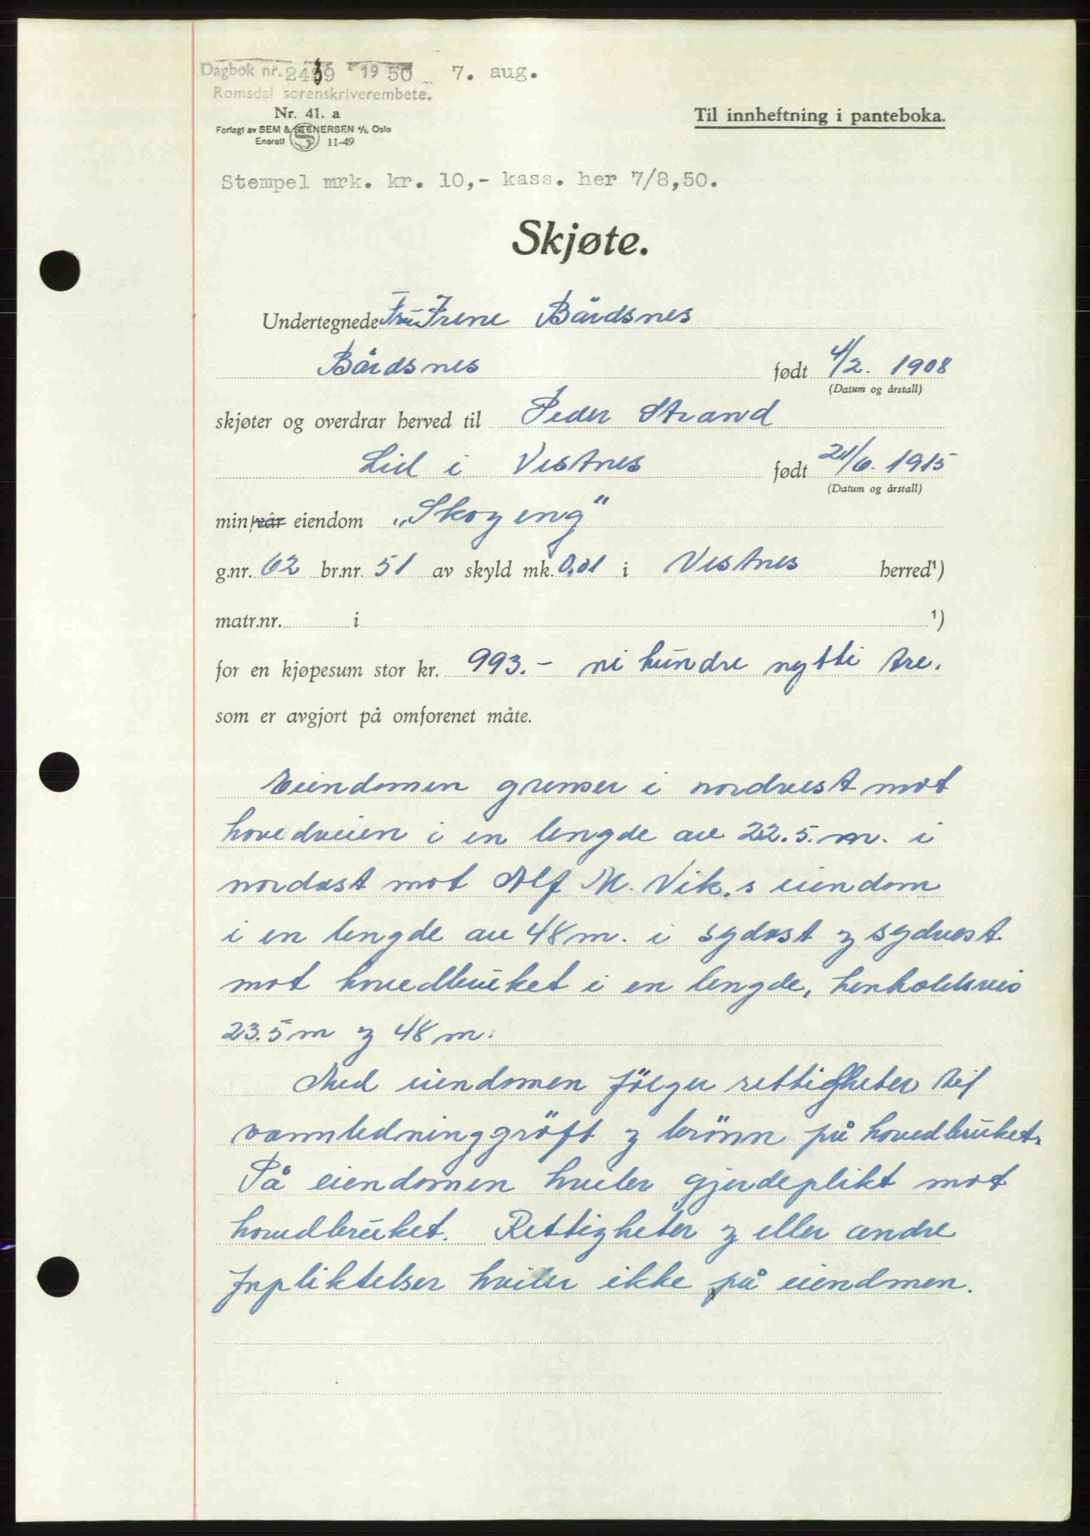 Dagbok nr. 2439 1950 7. aug.
Romsdal sorenskriverembete.
Nr. 41. a
Til innheftning i panteboka.
Forlagt av SEM & STENERSEN A/S, Oslo
Enerett 11-49
Stempel mrk. kr. 10,- kass. her 7/8,50.
Skjøte.
Undertegnede Fru Irene Bårdsnes
Bårdsnes født 4/2. 1908
(Datum og årstall)
skjøter og overdrar herved til Peder Strand
Lid i Vestnes født 21/6. 1915
(Datum og årstall)
min/vår eiendom „Skogeng“
g.nr. 62 br.nr. 51 av skyld mk. 0,01 i Vestnes herred¹)
matr.nr. i ¹)
for en kjøpesum stor kr. 993.- ni hundre nytti tre.
som er avgjort på omforenet måte.
Eiendomen grenser i nordvest mot
hovedveien i en lengde av 22.5. m. i
nordøst mot Alf M. Vik.s eiendom
i en lengde av 48 m. i sydøst og sydvest
mot hovedbruket i en lengde, henholdsvis
23.5 m og 48 m.
Med eiendomen fölger rettigheter til
vannledninggröft og brönn på hovedbruket.
På eiendomen hviler gjerdeplikt mot
hovedbruket. Rettigheter og eller andre
forpliktelser hviler ikke på eiendmen.